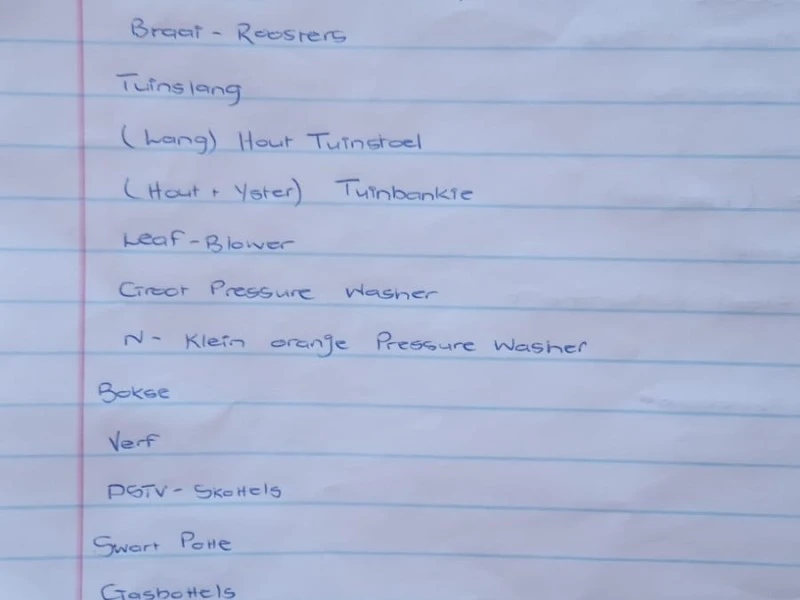 Braai - Roosters
Tuinslang
(Lang) Hout Tuinstoel
(Hout + Yster) Tuinbankie
Leaf-Blower
Groot Pressure Washer
N- Klein oranje Pressure Washer
Bokse
Verf
DSTV - Skottels
Swart Potte
Gasbottels